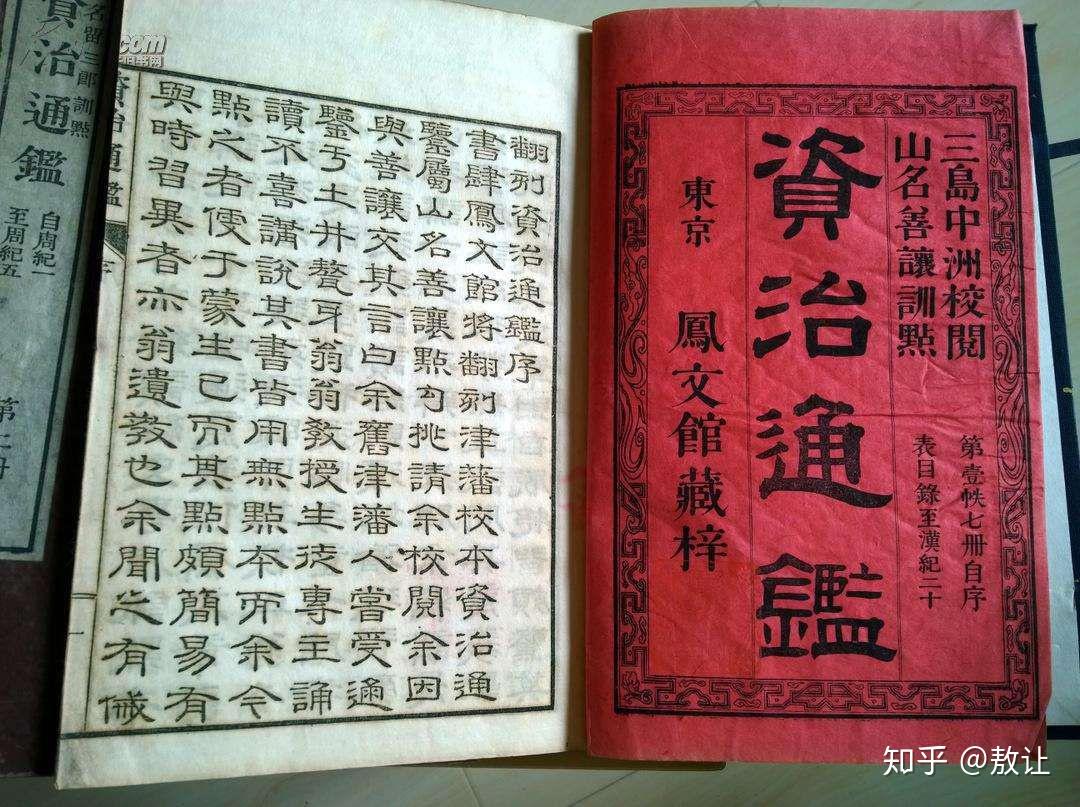 三島中洲校閱
山名善讓訓點
第壹帙七冊自序
表目錄至漢紀二十
資治通鑑
東京 鳳文館藏梓
翻刻資治通鑑序
書肆鳳文館將翻刻津藩校本資治通
鑒屬山名善讓點勾挑請余校閱余因
與善讓交其言曰余舊津藩人嘗受通
鑒于土井聱牙翁翁教授生徒專主誦
讀不喜講說其書皆用無點本而余今
點之者便于蒙生已而其點頗簡易有
與時習異者亦翁遺教也余聞之有慽
資治通鑑
名留三郎訓點
資治通鑑
自周紀一
至周紀五
知乎 @敖让